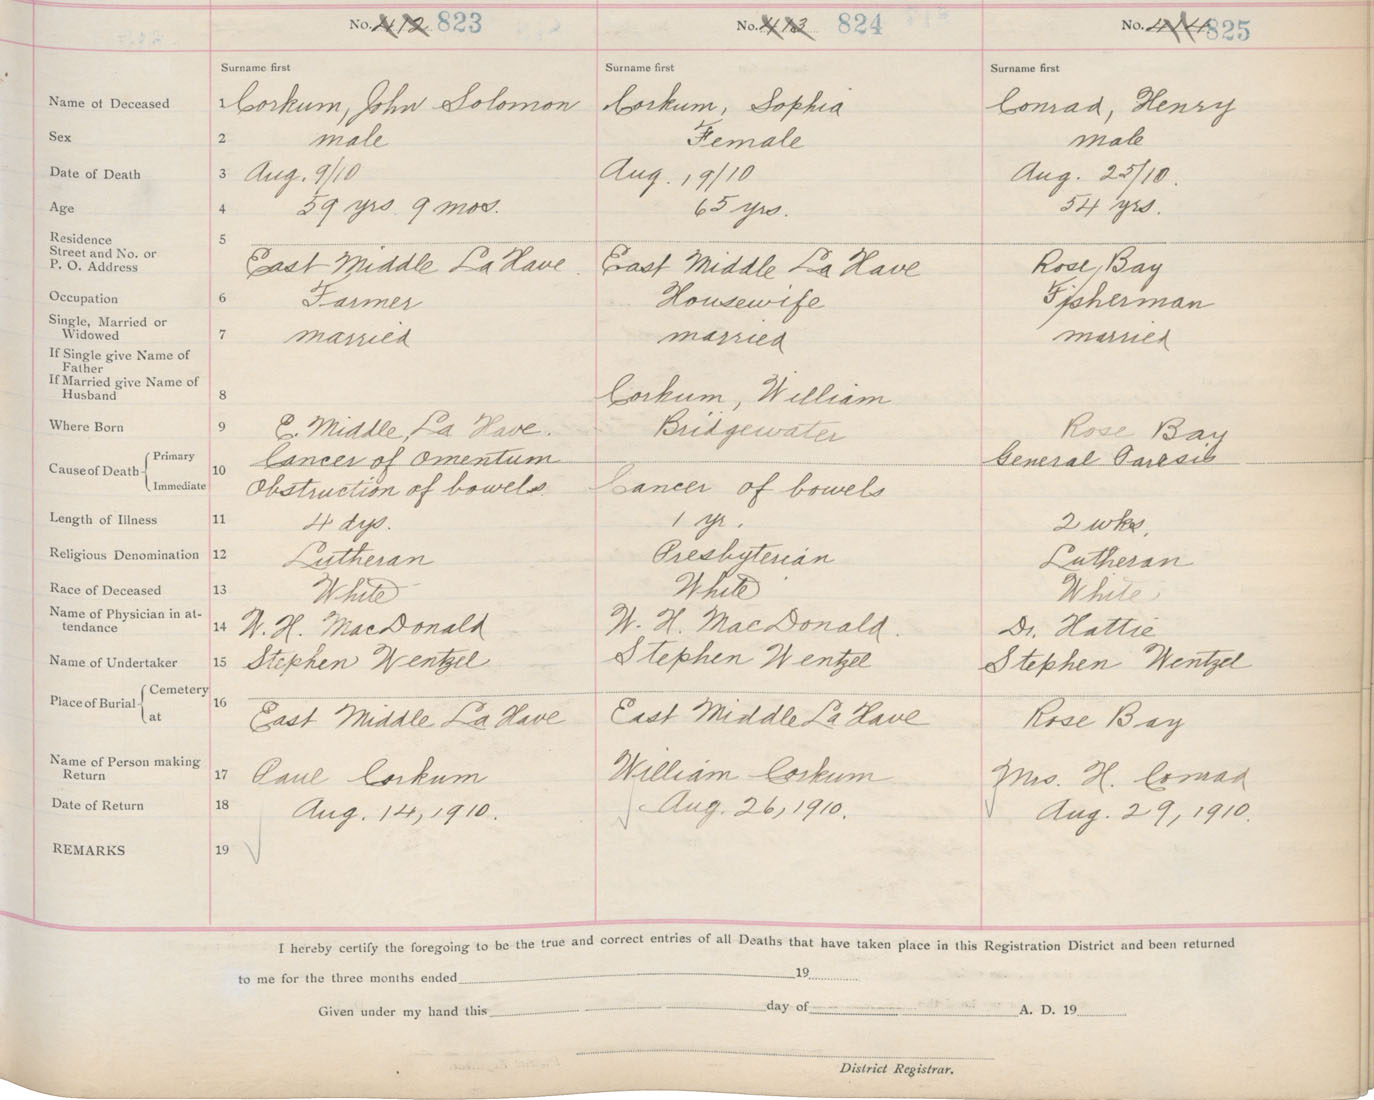 No. 412 823 No. 413 824 No. 414 825
Surname first Surname first Surname first
Name of Deceased 1 Corkum, John Solomon Corkum, Sophia Conrad, Henry
Sex 2 male Female male
Date of Death 3 Aug. 9/10 Aug. 19/10 Aug. 25/10.
Age 4 59 yrs 9 mos. 65 yrs. 54 yrs.
Residence 5
Street and No. or
P. O. Address East Middle La Have East Middle La Have Rose Bay
Occupation 6 Farmer Housewife Fisherman
Single, Married or
Widowed 7 married married married
If Single give Name of
Father
If Married give Name of
Husband 8 Corkum, William
Where Born 9 E. Middle La Have. Bridgewater Rose Bay
Cause of Death Primary 10 Cancer of Omentum General Paresis
Immediate Obstruction of bowels Cancer of bowels
Length of Illness 11 4 dys. 1 yr. 2 wks.
Religious Denomination 12 Lutheran Presbyterian Lutheran
Race of Deceased 13 White White White
Name of Physician in at-
tendance 14 W. H. MacDonald W. H. MacDonald. Dr. Hattie
Name of Undertaker 15 Stephen Wentzel Stephen Wentzel Stephen Wentzel
Place of Burial Cemetery 16
at East Middle La Have East Middle La Have Rose Bay
Name of Person making
Return 17 Paul Corkum William Corkum Mrs. H. Conrad
Date of Return 18 Aug. 14, 1910. Aug. 26, 1910. Aug. 29, 1910.
REMARKS 19
I hereby certify the foregoing to be the true and correct entries of all Deaths that have taken place in this Registration District and been returned
to me for the three months ended 19
Given under my hand this day of A. D. 19
District Registrar.